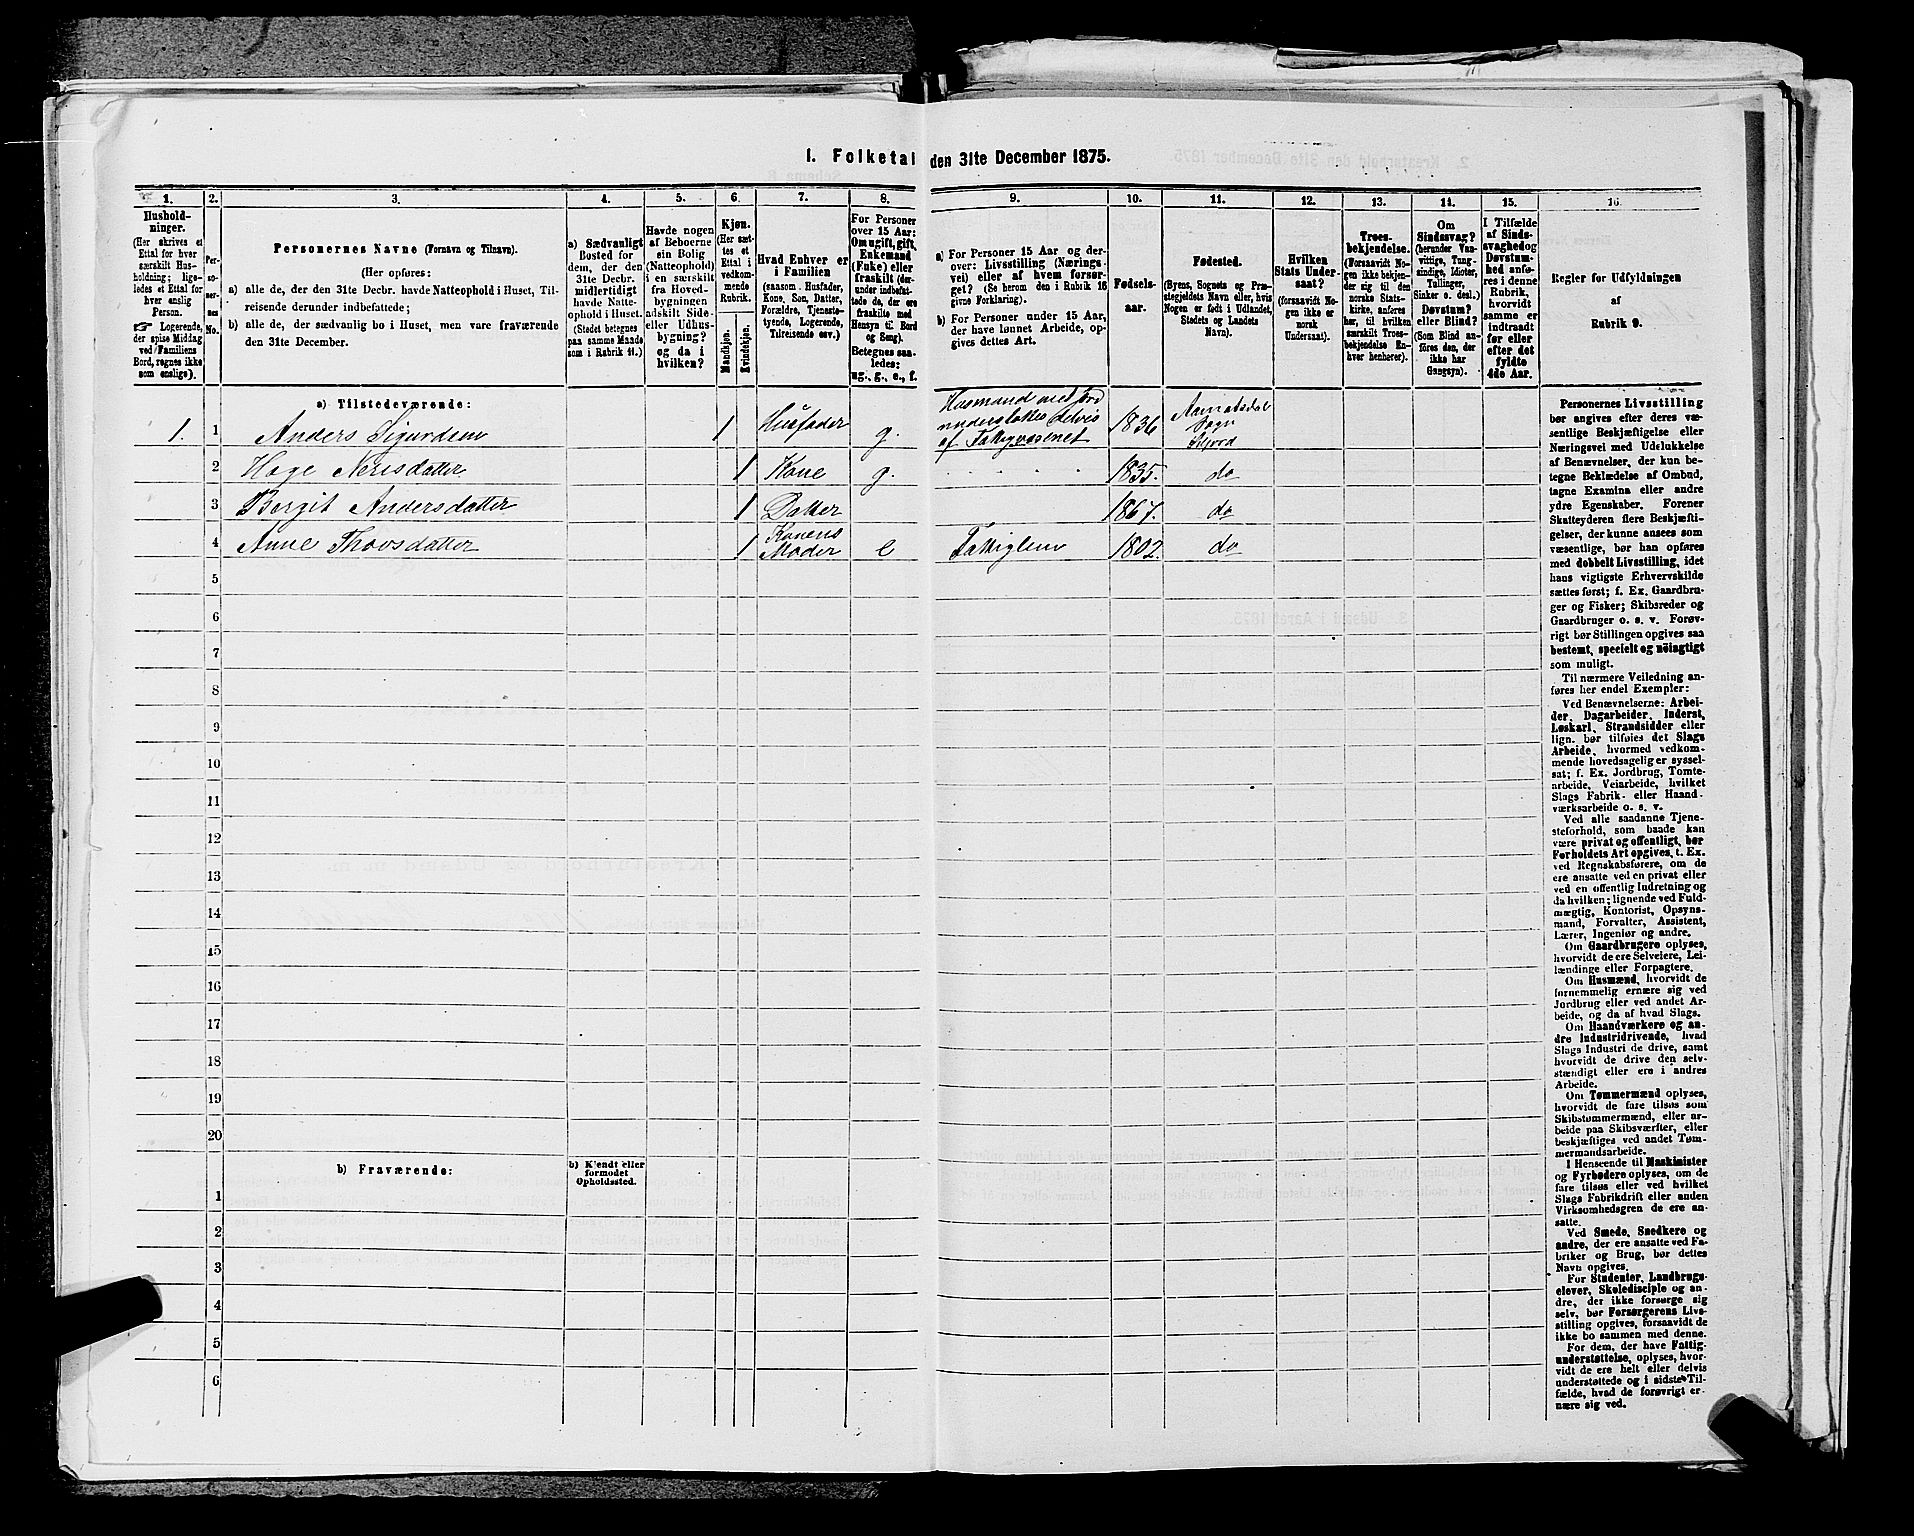 1. Folketal den 31te December 1875.
1.
Hushold-
ninger.
(Her skrives et
Ettal for hver
særskilt Hus-
holdning; lige-
ledes et Ettal for
hver enslig
Person.
☞ Logerende,
der spise Middag
ved Familiens
Bord, regnes ikke
som enslige).
2.
Per-
so-
ner-
nes
No.
3.
Personernes Navne (Fornavn og Tilnavn).
(Her opføres:
a) alle de, der den 31te Decbr. havde Natteophold i Huset, Til-
reisende derunder indbefattede;
b) alle de, der sædvanlig bo i Huset, men vare fraværende
den 31te December.
4.
a) Sædvanligt
Bosted for
dem, der den
31te Decbr.
midlertidigt
havde Natte-
ophold i Huset.
(Stedet betegnes
paa samme Maade
som i Rubrik 11.)
5.
Havde nogen
af Beboerne
sin Bolig
(Natteophold)
i en særskilt
fra Hoved-
bygningen
adskilt Side-
eller Udhus-
bygning?
og da i
hvilken?
6.
Kjøn.
(Her sæt-
tes et
Ettal i
vedkom-
mende
Rubrik.
Mandkjøn.
Kvindekjøn.
7.
Hvad Enhver er
i Familien
(saasom Husfader,
Kone, Søn, Datter,
Forældre, Tjeneste-
tyende, Logerende,
Tilreisende osv.)
8.
For Personer
over 15 Aar:
Om ugift, gift,
Enkemand
(Enke) eller
fraskilt (der-
under indbefat-
tede de, der ere
fraskilte med
Hensyn til Bord
og Seng).
Betegnes saa-
ledes:
ug., g., e., f.
9.
a) For Personer 15 Aar og der-
over: Livsstilling (Nærings-
vei) eller af hvem forsør-
get? (Se herom den i Rubrik 16
givne Forklaring).
b) For Personer under 15 Aar,
der have lønnet Arbeide, op-
gives dettes Art.
10.
Fødsels-
aar.
11.
Fødested.
(Byens, Sognets og Præ-
stegjeldets Navn eller, hvis
Nogen er født i Udlandet,
Stedets og Landets
Navn).
12.
Hvilken
Stats Under-
saat?
(forsaavidt No-
gen ikke er
norsk
Undersaat).
13.
Troes-
bekjendelse.
(Forsaavidt No-
gen ikke bekjen-
der sig til den
norske Stats-
kirke, anføres
her, til hvilken
særskilt Troes-
bekjendelse En-
hver henhører).
14.
Om
Sindssvag?
(herunder Van-
vittige, Tung-
sindige, Idioter,
Tullinger,
Sinker o. desl.)
Døvstum?
eller Blind?
(Som Blind an-
føres den, der
ikke har
Gangsyn).
15.
I Tilfælde
af Sinds-
svaghed og
Døvstum-
hed anfø-
res i denne
Rubrik,
hvorvidt
samme er
indtraadt
før eller
efter det
fyldte
4de Aar.
16.
Regler for Udfyldningen
af
Rubrik 9.
a) Tilstedeværende:
1. 1 Anders Sigurdsen 1 Husfader g. Husmand med Jord
understøttes delvis
af Fattigvæsenet 1836 Aamotsdal
Sogn
2 Hæge Nerisdatter 1 Kone g. 1835. do
3 Bergit Andersdatter 1 Datter 1867. do
4 Anne Thovsdatter 1 Konens
Moder e Fattiglem 1802. do
5
6
7
8
9
10
11
12
13
14
15
16
17
18
19
20
b) Fraværende:
b) Kjendt eller
formodet
Opholdssted.
1
2
3
4
5
6
Personernes Livsstilling
bør angives efter deres væ-
sentlige Beskjæftigelse eller
Næringsvei med Udelukkelse
af Benævnelser, der kun be-
tegne Beklædelse af Ombud,
tagne Examina eller andre
ydre Egenskaber. Forener
Skatteyderen flere Beskjæfti-
gelser, der kunne ansees som
væsentlige, bør han opføres
med dobbelt Livsstilling, idet
hans vigtigste Erhvervskilde
sættes først; f. Ex. Gaardbru-
ger og Fisker; Skibsreder og
Gaardbruger o. s. v. Forøv-
rigt bør Stillingen opgives saa
bestemt, specielt og nøiagtigt
som muligt.
Til nærmere Veiledning an-
føres her endel Exempler:
Ved Benævnelserne: Arbei-
der, Dagarbeider, Inderst,
Løskarl, Strandsidder eller
lign. bør tilføies det Slags
Arbeide, hvormed vedkom-
mende hovedsagelig er syssel-
sat; f. Ex. Jordbrug, Tomte-
arbeide, Veiarbeide, hvilket
Slags Fabrik- eller Haand-
værksarbeide o. s. v.
Ved alle saadanne Tjene-
steforhold, som baade kan
være privat og offentligt, bør
Forholdets Art opgives, t. Ex.
ved Regnskabsførere, om de
ere ansatte ved en privat eller
ved en offentlig Indretning og
da hvilken; lignende ved Fuld-
mægtig, Kontorist, Opsyns-
mand, Forvalter, Assistent,
Lærer, Ingeniør og andre.
Om Gaardbrugere oplyses,
hvorvidt de ere Selveiere, Lei-
lændinge eller Forpagtere.
Om Husmænd, hvorvidt de
fornemmelig ernære sig ved
Jordbrug eller ved andet Ar-
beide, og da af hvad Slags.
Om Haandværkere og an-
dre Industridrivende, hvad
Slags Industri de drive, samt
hvorvidt de drive den selv-
stændigt eller ere i andres
Arbeide.
Om Tømmermænd oplyses,
hvorvidt de fare tilsøs som
Skibstømmermænd, eller ar-
beide paa Skibsværfter, eller
beskjæftiges ved andet Tøm-
mermandsarbeide.
I Henseende til Maskinister
og Fyrbødere oplyses, om de
fare tilsøs eller ved hvilket
Slags Fabrikdrift eller anden
Virksomhedsgren de ere an-
satte.
Ved Smede, Snedkere og
andre, der ere ansatte ved Fa-
briker og Brug, bør dettes
Navn opgives.
For Studenter, Landbrugs-
elever, Skoledisciple og an-
dre, der ikke forsørge sig
selv, bør Forsørgerens Livs-
stilling opgives, forsaavidt de
ikke bo sammen med denne.
For dem, der have Fattig-
understøttelse, oplyses, hvor-
vidt de ere helt eller delvis
understøttede og i sidste Til-
fælde, hvad de forøvrigt er-
nære sig ved.